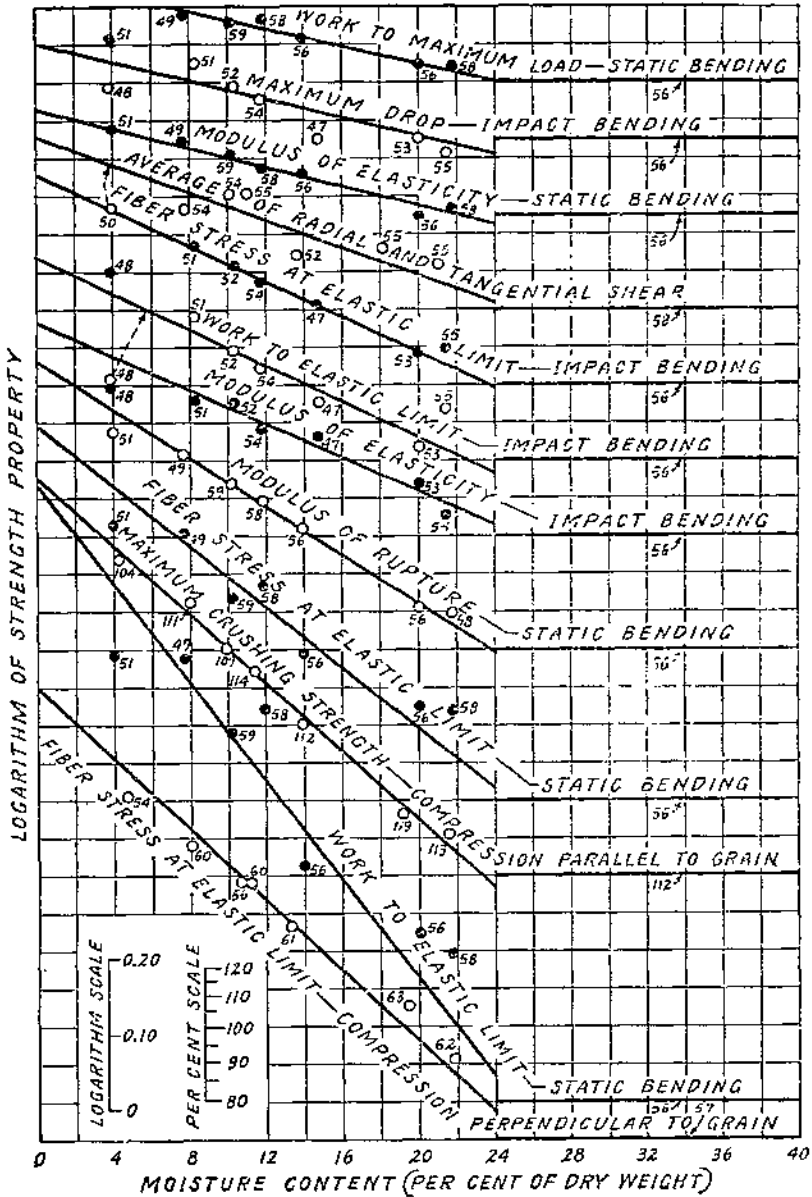 WORK TO MAXIMUM LOAD—STATIC BENDING
MAXIMUM DROP—IMPACT BENDING
MODULUS OF ELASTICITY—STATIC BENDING
AVERAGE OF RADIAL AND TANGENTIAL SHEAR
FIBER STRESS AT ELASTIC LIMIT—IMPACT BENDING
WORK TO ELASTIC LIMIT—IMPACT BENDING
MODULUS OF ELASTICITY—IMPACT BENDING
MODULUS OF RUPTURE—STATIC BENDING
FIBER STRESS AT ELASTIC LIMIT—STATIC BENDING
MAXIMUM CRUSHING STRENGTH—COMPRESSION PARALLEL TO GRAIN
WORK TO ELASTIC LIMIT—STATIC BENDING
FIBER STRESS AT ELASTIC LIMIT—COMPRESSION PERPENDICULAR TO GRAIN
49 59 58 56 56 58 56
51 48 51 52 54 47 53 55 56
51 49 59 58 56 36 58 56
50 54 54 55 52 55 55 58
51 52 54 47 53 55 56
48 51 52 54 47 53 55 56
48 48 51 52 54 47 53 54 56
51 49 59 58 56 56 58 56
51 49 59 58 56 56 58 56
104 111 107 114 112 119 113 112
51 47 59 58 56 56 58 56
54 60 59 60 61 63 62 57
LOGARITHM OF STRENGTH PROPERTY
LOGARITHM SCALE
0.20
0.10
0
PER CENT SCALE
120
110
100
90
80
0 4 8 12 16 20 24 28 32 36 40
MOISTURE CONTENT (PER CENT OF DRY WEIGHT)